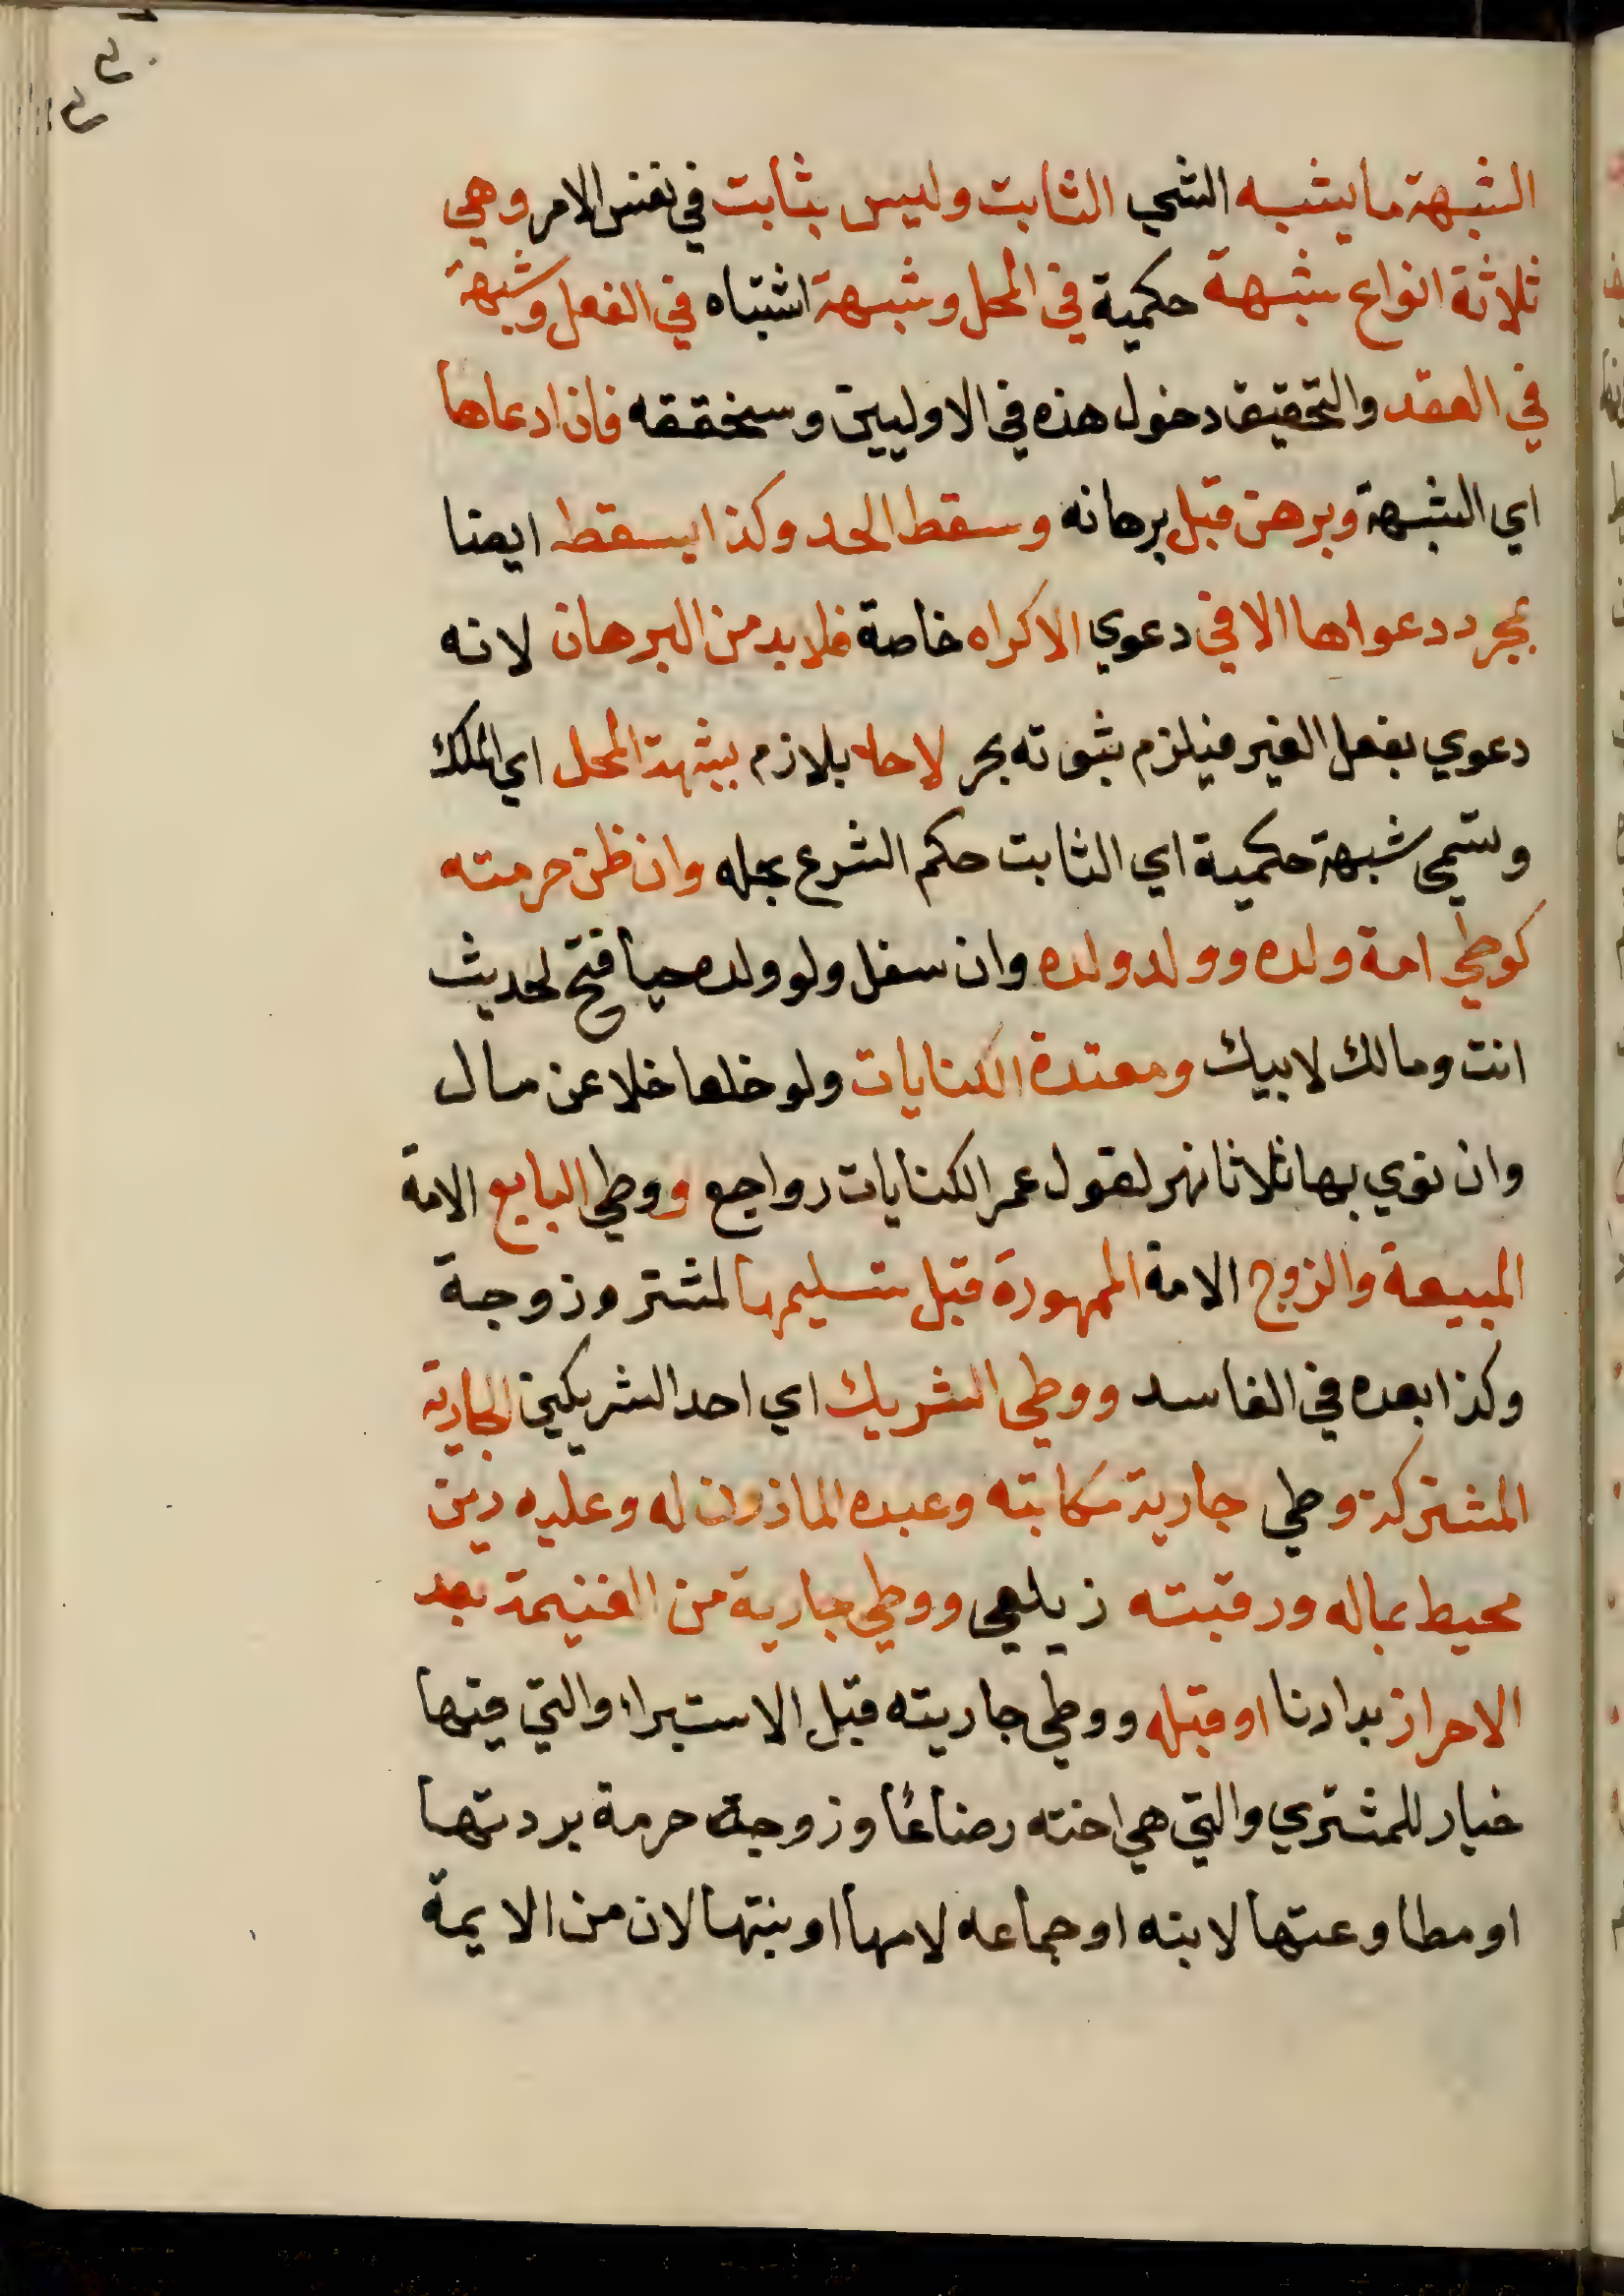 الشبهة ما يشبه الشي الثابت وليس بثابت في نفس الامر وهي
ثلاثة انواع شبهة حكمية في المحل وشبهة اشتباه في الفعل وشبهة
في العقد والتحقيق دخول هذه في الاوليين وسنحققه فان ادعاها
اي الشبهة وبرهن قبل برهانه وسقط الحد وكذا يسقط ايضا
بمجرد دعواها الا في دعوي الاكراه خاصة فلا بد من البرهان لانه
دعوي بفعل الغير فيلزم ثبوته بحر لا حد بلازم بشبهة المحل اي الملك
وتسمي شبهة حكمية اي الثابت حكم الشرع بحله وان ظن حرمته
كوطي امة ولده وولد ولده وان سفل ولو ولده حيا فتح لحديث
انت ومالك لابيك ومعتدة الكنايات ولو خلعا خلا عن مال
وان نوي بها ثلاثا نهر لقول عمر الكنايات رواجع ووطي البايع الامة
المبيعة والزوج الامة الممهورة قبل تسليمها لمشتر وزوجة
وكذا بعده في الفاسد ووطي الشريك اي احد الشريكين الجارية
المشتركة وطي جارية مكاتبه وعبده الماذون له وعليه دين
محيط بماله ورقبته زيلعي ووطي جارية من الغنيمة بعد
الاحراز بدارنا او قبله ووطي جاريته قبل الاستبراء والتي فيها
خيار للمشتري والتي هي اخته رضاعًا وزوجة حرمة بردتها
او مطاوعتها لابنه او جماعه لامها او بنتها لان من الايمة